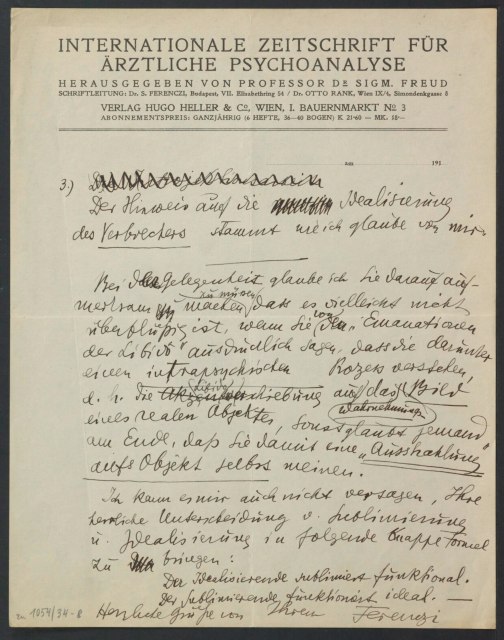 INTERNATIONALE ZEITSCHRIFT FÜR
ÄRZTLICHE PSYCHOANALYSE
HERAUSGEGEBEN VON PROFESSOR DR SIGM. FREUD
SCHRIFTLEITUNG: Dr. S. FERENCZI, Budapest, VII. Elisabethring 54 / Dr. OTTO RANK, Wien IX/4, Simondenkgasse 8
VERLAG HUGO HELLER & Co, WIEN, I. BAUERNMARKT No 3
ABONNEMENTSPREIS: GANZJÄHRIG (6 HEFTE, 36–40 BOGEN) K 21·60 = MK. 18·–
am 191
3.)
Der Hinweis auf die Idealisierung
des Verbrechers stammt wie ich glaube von mir.
Bei der Gelegenheit glaube ich Sie darauf auf-
merksam machen zu müssen, dass es vielleicht nicht
überflüßig ist, wenn Sie von den "Emanationen
der Libido" ausdrücklich sagen, dass die darunter
einen intrapsychischen Prozess verstehen,
d. h. die Libidoverschiebung auf das Bild
eines realen Objektes, sonst glaubt jemand
am Ende, daß Sie damit eine "Ausstrahlung
aufs Objekt selbst meinen.
Ich kann es mir auch nicht versagen, Ihre
herrliche Unterscheidung v. Sublimierung
u. Idealisierung in folgende knappe Formel
zu bringen:
Der Idealisierende sublimiert funktional.
Der Sublimierende funktioniert ideal. —
Herzliche Grüße von Ihrem Ferenczi
1054/34-8